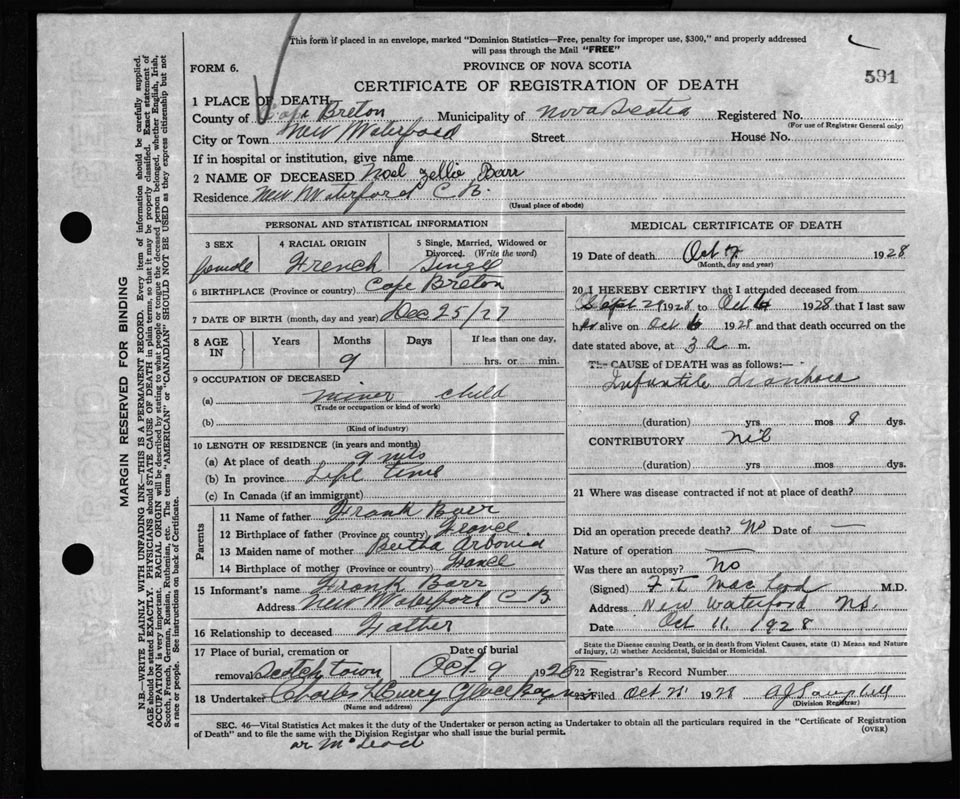 This form if placed in an envelope, marked "Dominion Statistics—Free, penalty for improper use, $300," and properly addressed
will pass through the Mail "FREE"
FORM 6.
PROVINCE OF NOVA SCOTIA
591
CERTIFICATE OF REGISTRATION OF DEATH
1 PLACE OF DEATH
County of Cape Breton Municipality of Nova Scotia Registered No.
(For use of Registrar General only)
City or Town New Waterford Street House No.
If in hospital or institution, give name
2 NAME OF DECEASED Noel Zellie Barr
Residence New Waterford C B.
(Usual place of abode)
PERSONAL AND STATISTICAL INFORMATION
3 SEX 4 RACIAL ORIGIN 5 Single, Married, Widowed or
Divorced. (Write the word)
French Single
6 BIRTHPLACE (Province or country) Cape Breton
7 DATE OF BIRTH (month, day and year) Dec 25/27
8 AGE IN Years Months Days If less than one day,
9 hrs. or min.
9 OCCUPATION OF DECEASED
(a) child
(Trade or occupation or kind of work)
(b)
(Kind of industry)
10 LENGTH OF RESIDENCE (in years and months)
(a) At place of death 9
(b) In province Life time
(c) In Canada (if an immigrant)
Parents
11 Name of father Frank Barr
12 Birthplace of father (Province or country) France
13 Maiden name of mother Bertha
14 Birthplace of mother (Province or country) France
15 Informant's name Frank Barr
Address New Waterford C B
16 Relationship to deceased Father
17 Place of burial, cremation or Date of burial
removal Scotchtown Oct 9 1928
18 Undertaker Charles Curry Glace Bay
(Name and address)
MEDICAL CERTIFICATE OF DEATH
19 Date of death Oct 7 1928
(Month, day and year)
20 I HEREBY CERTIFY that I attended deceased from
Sept 29 1928 to Oct 6 1928 that I last saw
h alive on Oct 6 1928 and that death occurred on the
date stated above, at 3 a m.
The CAUSE of DEATH was as follows:—
Infantile diarrhoea
(duration) yrs mos 8 dys.
CONTRIBUTORY nil
(duration) yrs. mos. dys.
21 Where was disease contracted if not at place of death?
Did an operation precede death? No Date of
Nature of operation
Was there an autopsy? No
(Signed) M.D.
Address New Waterford N.S.
Date Oct 11 1928
State the Disease causing Death, or in death from Violent Causes, state (1) Means and Nature
of Injury, (2) whether Accidental, Suicidal or Homicidal.
22 Registrar's Record Number
23 Filed Oct 1928 A J Campbell
(Division Registrar)
SEC. 46—Vital Statistics Act makes it the duty of the Undertaker or person acting as Undertaker to obtain all the particulars required in the "Certificate of Registration
of Death" and to file the same with the Division Registrar who shall issue the burial permit.
(OVER)
McLeod
MARGIN RESERVED FOR BINDING
N.B.—WRITE PLAINLY WITH UNFADING INK—THIS IS A PERMANENT RECORD. Every item of information should be carefully supplied.
AGE should be stated EXACTLY. PHYSICIANS should STATE CAUSE OF DEATH in plain terms, so that it may be properly classified. Exact statement of
OCCUPATION is very important. RACIAL ORIGIN will be described by stating to what people or tongue the deceased person belonged, whether English, Irish,
Scotch, French, German, Russian, Ruthenian, etc. The terms "AMERICAN" or "CANADIAN" SHOULD NOT BE USED as they express citizenship but not
a race or people. See instructions on back of Certificate.